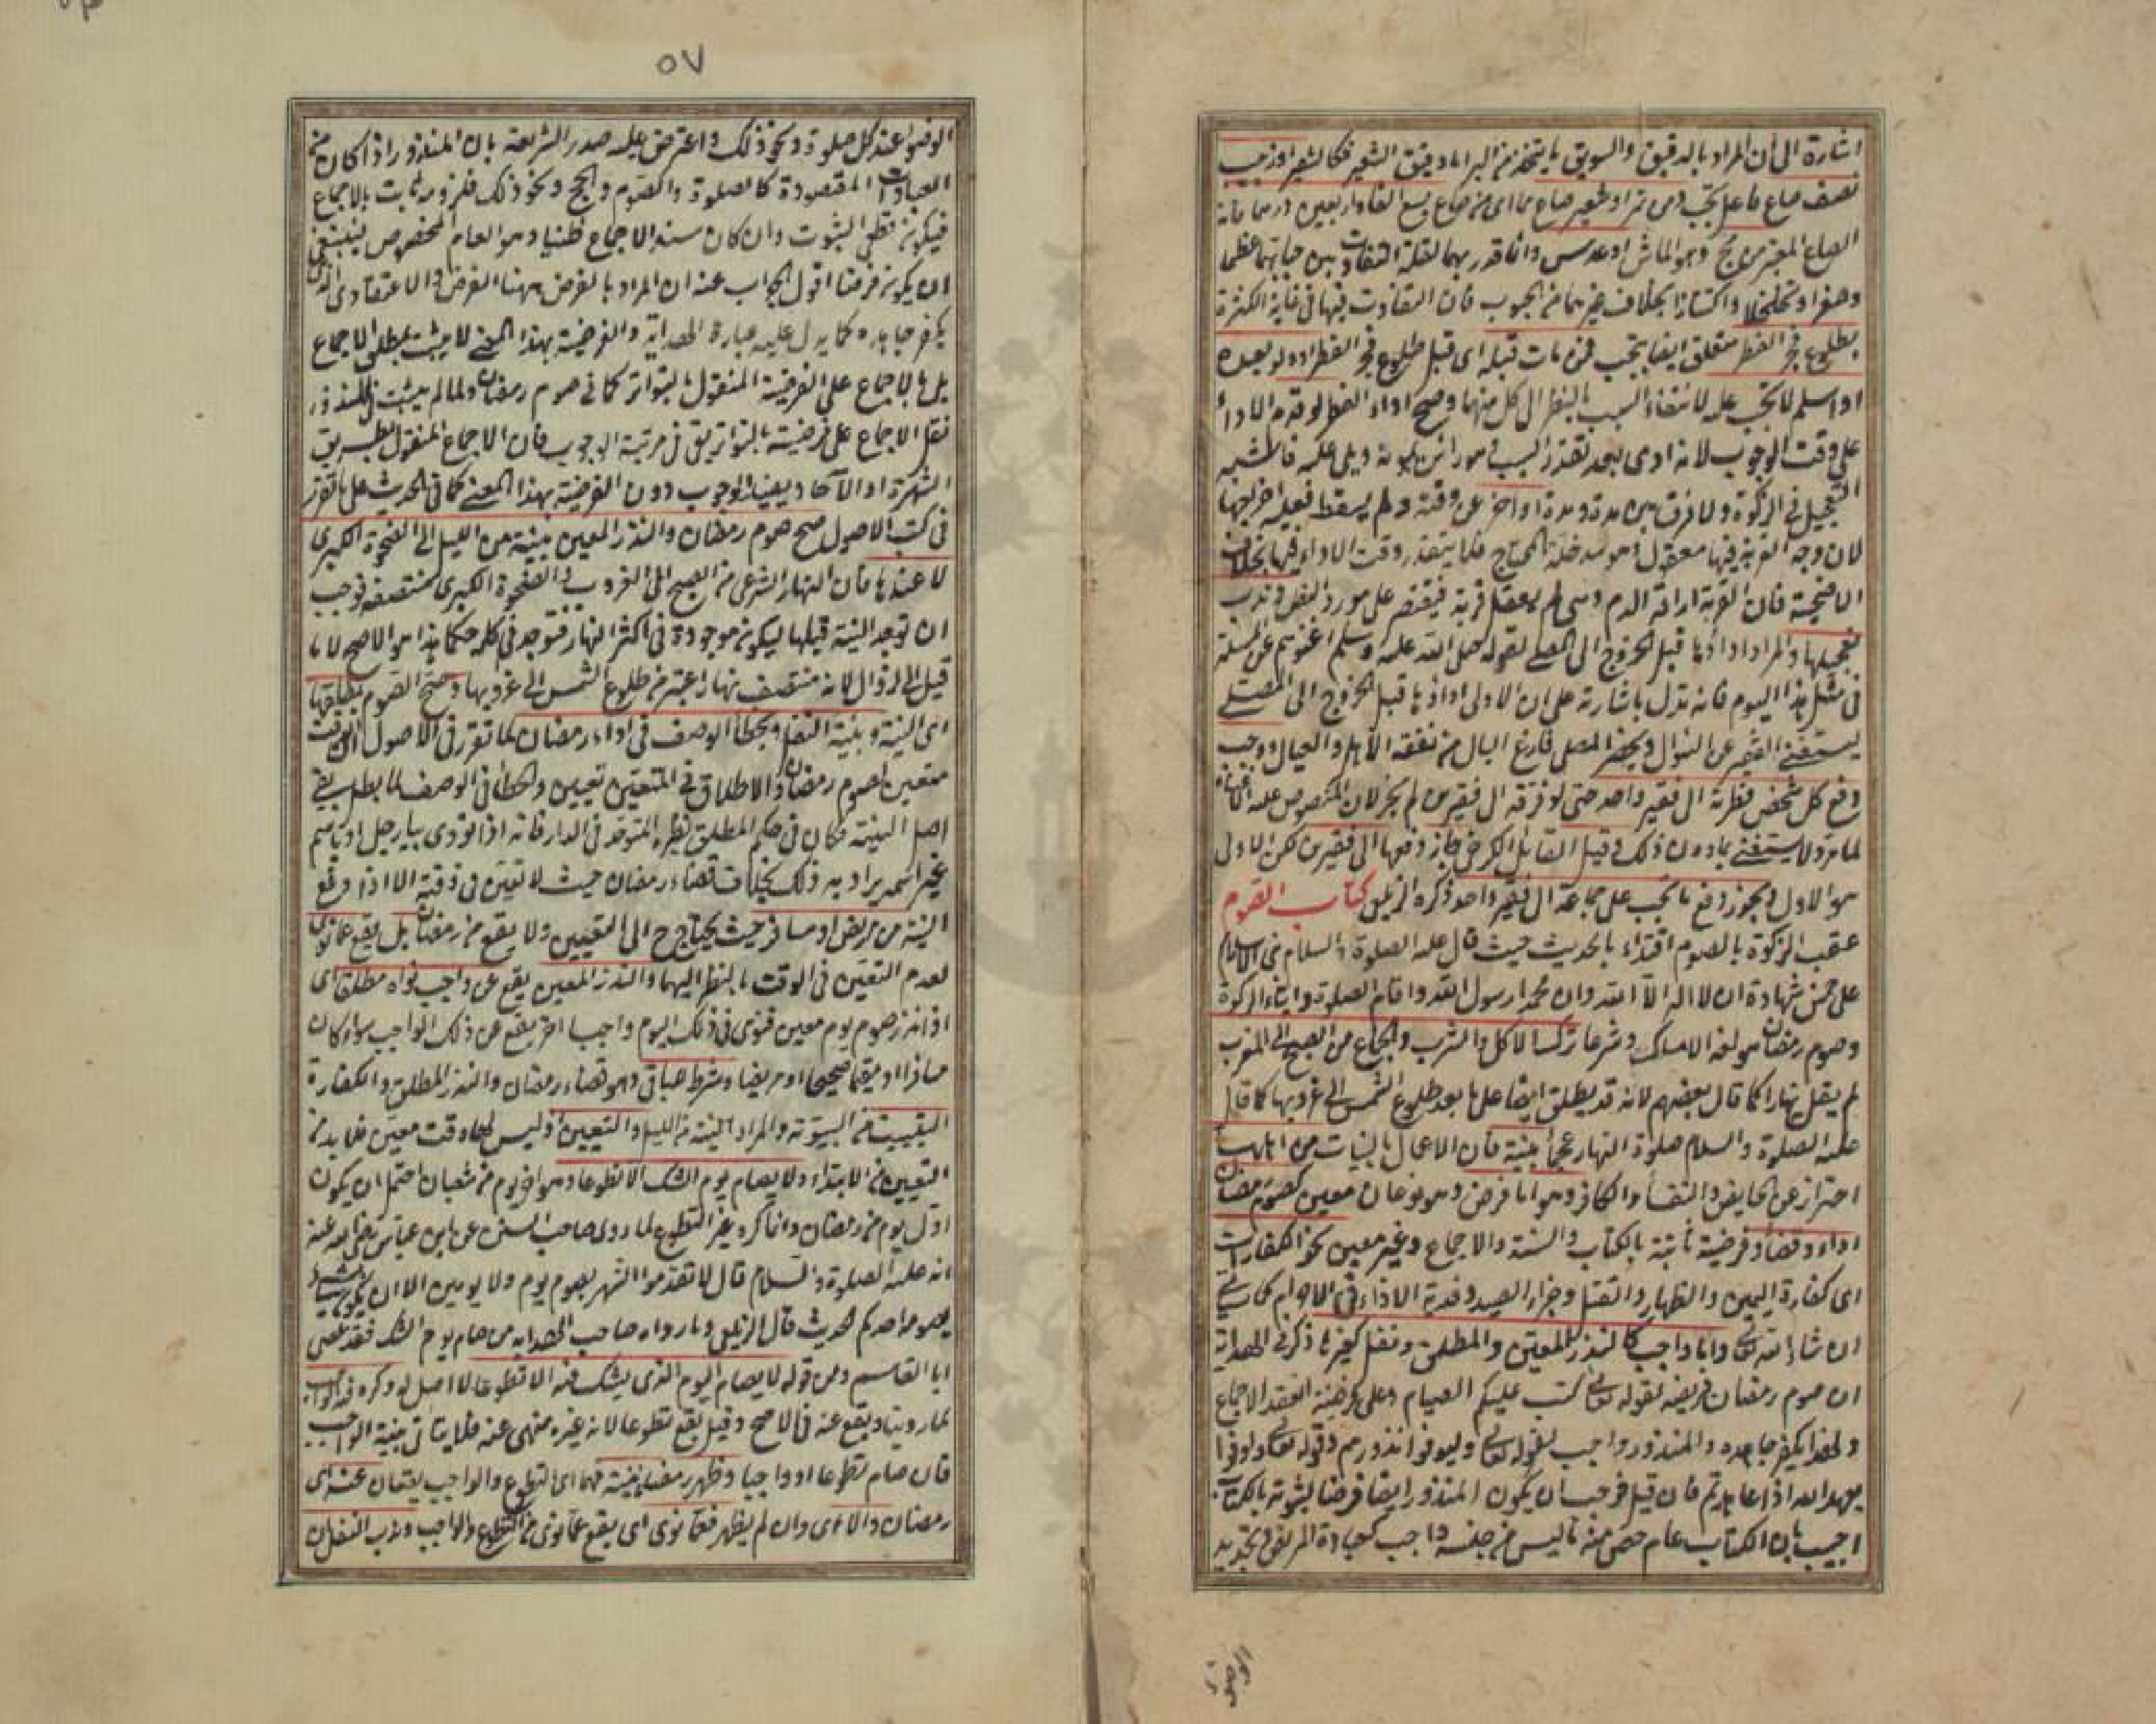 اشارة الى ان المراد بالدقيق والسويق ما يتخذ من البر اما دقيق الشعير فكالشعير او زبيب
نصف صاع فاعل تجب ومن تمر او شعير صاع مما اى من صاع يسع الفا واربعين درهما فانه
الصاع المعتبر من مج وهو الماش او عدس وانما قدر بهما لقلة التفاوت بين حباتهما عظما
وصغرا وتخلخلا واكتنازا بخلاف غيرهما من الحبوب فان التفاوت فيها فى غاية الكثرة
بطلوع فجر الفطر متعلق ايضا بتجب فمن مات قبله اى قبل طلوع فجر الفطر او ولد بعده
او اسلم لا تجب عليه لانتفاء السبب بالنظر الى كل منهما وصح اداء الفطر لو قدم الاداء
على وقت الوجوب لانه ادى بعد تقرر السبب وهو راس يمونه ويلى عليه فاشبه
التعجيل فى الزكوة ولا فرق بين مدة ومدة او اخر عن وقته ولم يسقط فعليه اخراجها
لان وجه القربة فيها معقول وهو سد خلة المحتاج فلا يتقدر وقت الاداء فيها بخلاف
الاضحية فان القربة اراقة الدم وهى لم يعقل قربة فيقتصر على مورد النص وندب
تعجيلها والمراد اداؤها قبل الخروج الى المصلى لقوله صلى الله عليه وسلم اغنوهم عن المسئلة
فى مثل هذا اليوم فانه تدل باشارته على ان الاولى اداؤها قبل الخروج الى المصلى
ليستغنى الفقير عن السؤال ويحضر المصلى فارغ البال من نفقة الاهل والعيال ووجب
دفع كل شخص فطرته الى فقير واحد حتى لو فرقه الى فقيرين لم يجز لان المنصوص عليه الاغناء
لما مر ولا يستغنى بما دون ذلك وقيل القائل الكرخى جاز دفعها الى فقيرين لكن الاولى
هو الاول ويجوز دفع ما تجب على جماعة الى فقير واحد ذكره الزيلعى كتاب الصوم
عقب الزكوة بالصوم اقتداء بالحديث حيث قال عليه الصلوة والسلام بنى الاسلام
على خمس شهادة ان لا اله الا الله وان محمدا رسول الله واقام الصلوة وايتاء الزكوة
وصوم رمضان هو لغة الامساك وشرعا ترك الاكل والشرب والجماع من الصبح الى المغرب
لم يقل نهارا كما قال بعضهم لانه قد يطلق ايضا على ما بعد طلوع الشمس الى غروبها كما قال
عليه الصلوة والسلام صلوة النهار عجماء بنية فان الاعمال بالنيات من اهله
احتراز عن الحايض والنفساء والكافر وهو اما فرض وهو نوعان معين كصوم رمضان
اداء وقضاء وفرضيته ثابتة بالكتاب والسنة والاجماع وغير معين نحو الكفارات
اى كفارة اليمين والظهار والقتل وجزاء الصيد وفدية الاذاء فى الاحرام كما ياتى
ان شاء الله تعالى واما واجب كالنذر المعين والمطلق ونفل كغيرها ذكر فى الهداية
ان صوم رمضان فريضة لقوله تعالى كتب عليكم الصيام وعلى فرضيته انعقد الاجماع
ولهذا يكفر جاحده والمنذور واجب لقوله تعالى وليوفوا نذورهم وقوله تعالى واوفوا
بعهد الله اذا عاهدتم فان قيل فوجب ان يكون المنذور ايضا فرضا لثبوته بالكتاب
اجيب بان الكتاب عام خص منه ما ليس من جنسه واجب كعيادة المريض وتجديد
الوضوء
٥٧
الوضوء عند كل صلوة ونحو ذلك واعترض عليه صدر الشريعة بان المنذور اذا كان من
العبادات المقصودة كالصلوة والصوم والحج ونحو ذلك فلزومه ثابت بالاجماع
فيكون قطعى الثبوت وان كان سند الاجماع ظنيا وهو العام المخصوص فينبغى
ان يكون فرضا اقول الجواب عنه ان المراد بالفرض ههنا الفرض الاعتقادى الذى
يكفر جاحده كما يدل عليه عبارة الهداية والفرضية بهذا المعنى لا يثبت بمطلق الاجماع
بل بالاجماع على الفرضية المنقول بالتواتر كما فى صوم رمضان ولما لم يثبت فى المنذور
نقل الاجماع على فرضيته بالتواتر بقى فى مرتبة الوجوب فان الاجماع المنقول بطريق
الشهرة او الآحاد يفيد الوجوب دون الفرضية بهذا المعنى كما فى الحديث على ما تقرر
فى كتب الاصول صح صوم رمضان والنذر المعين بنية من الليل الى الضحوة الكبرى
لا عندها فان النهار الشرعى من الصبح الى الغروب والضحوة الكبرى منتصفه فوجب
ان توجد النية قبلها ليكون موجودة فى اكثر النهار فتوجد فى كله حكما هذا هو الاصح لا ما
قيل الى الزوال لانه منتصف نهار اعتبر من طلوع الشمس الى غروبها وصح الصوم بمطلقها
اى النية وبنية النفل وبخطأ الوصف فى اداء رمضان لما تقرر فى الاصول ان الوقت
متعين لصوم رمضان والاطلاق فى المتعين تعيين والخطأ فى الوصف لما بطل بقى
اصل النية فكان فى حكم المطلق نظيره المتوحد فى الدار فانه اذا نودى بيا رجل او باسم
غير اسمه يراد به ذلك بخلاف قضاء رمضان حيث لا تعين فى وقته الا اذا وقع
النية من مريض او مسافر حيث يحتاج ح الى التعيين ولا يقع من رمضان بل يقع عما نوى
لعدم التعين فى الوقت بالنظر اليهما والنذر المعين يقع عن واجب نواه مطلقا اى
اذا نذر صوم يوم معين فنوى فى ذلك اليوم واجبا اخر يقع عن ذلك الواجب سواء كان
مسافرا او مقيما صحيحا او مريضا وشرط للباقى وهو قضاء رمضان والنذر المطلق والكفارة
التبييت من البيتوتة والمراد النية من الليل والتعيين اذ ليس لها وقت معين فلا بد من
التعيين فى الابتداء ولا يصام يوم الشك الا تطوعا وهو اخر يوم من شعبان احتمل ان يكون
اول يوم من رمضان وانما كره غير التطوع لما روى صاحب السنن عن ابن عباس رضى الله عنه
انه عليه الصلوة والسلام قال لا تقدموا الشهر بصوم يوم ولا يومين الا ان يكون شيئا
يصومه احدكم الحديث قال الزيلعى وما رواه صاحب الهداية من صام يوم الشك فقد عصى
ابا القاسم ومن قوله لا يصام اليوم الذى يشك فيه الا تطوعا لا اصل له وكره فيه الواجب
لما روينا ويقع عنه فى الاصح وقيل يقع تطوعا لانه غيره منهى عنه فلا يتأتى بنية الواجب
فان صام تطوعا او واجبا وظهر رمضانيته فهما اى التطوع والواجب يقعان عنه اى
رمضان والا اى وان لم يظهر فعما نوى اى يقع عما نوى من التطوع والواجب وندب التنفل ان